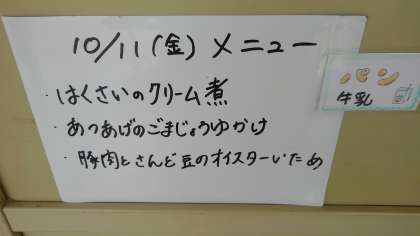 10/11(金)メニュー
・はくさいのクリーム煮
・あつあげのごまじょうゆかけ
・豚肉とさんど豆のオイスターいため
パン
牛乳